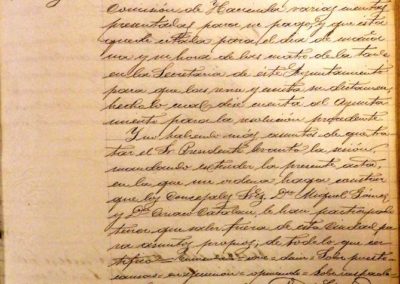 Comisión de Hacienda varias cuentas
presentadas para su pago, y que esta
quede citada para el dia de maña
na y su hora de las cuatro de la tarde
en la Secretaria de este Ayuntamiento
para que las vea y emita su dictamen
hecho lo cual dará cuenta al Ayunta
miento para la resolución procedente
Y no habiendo más asuntos de que tra
tar el Sr. Presidente levantó la sesión,
mandando extender la presente acta,
en la que me ordena haga constar
que los Concejales Sres. Dn. Miguel Gómez
y Dn. Catalan, le han participado
tener que salir fuera de esta Ciudad pa
ra asuntos propios, de todo lo que cer
tifico =